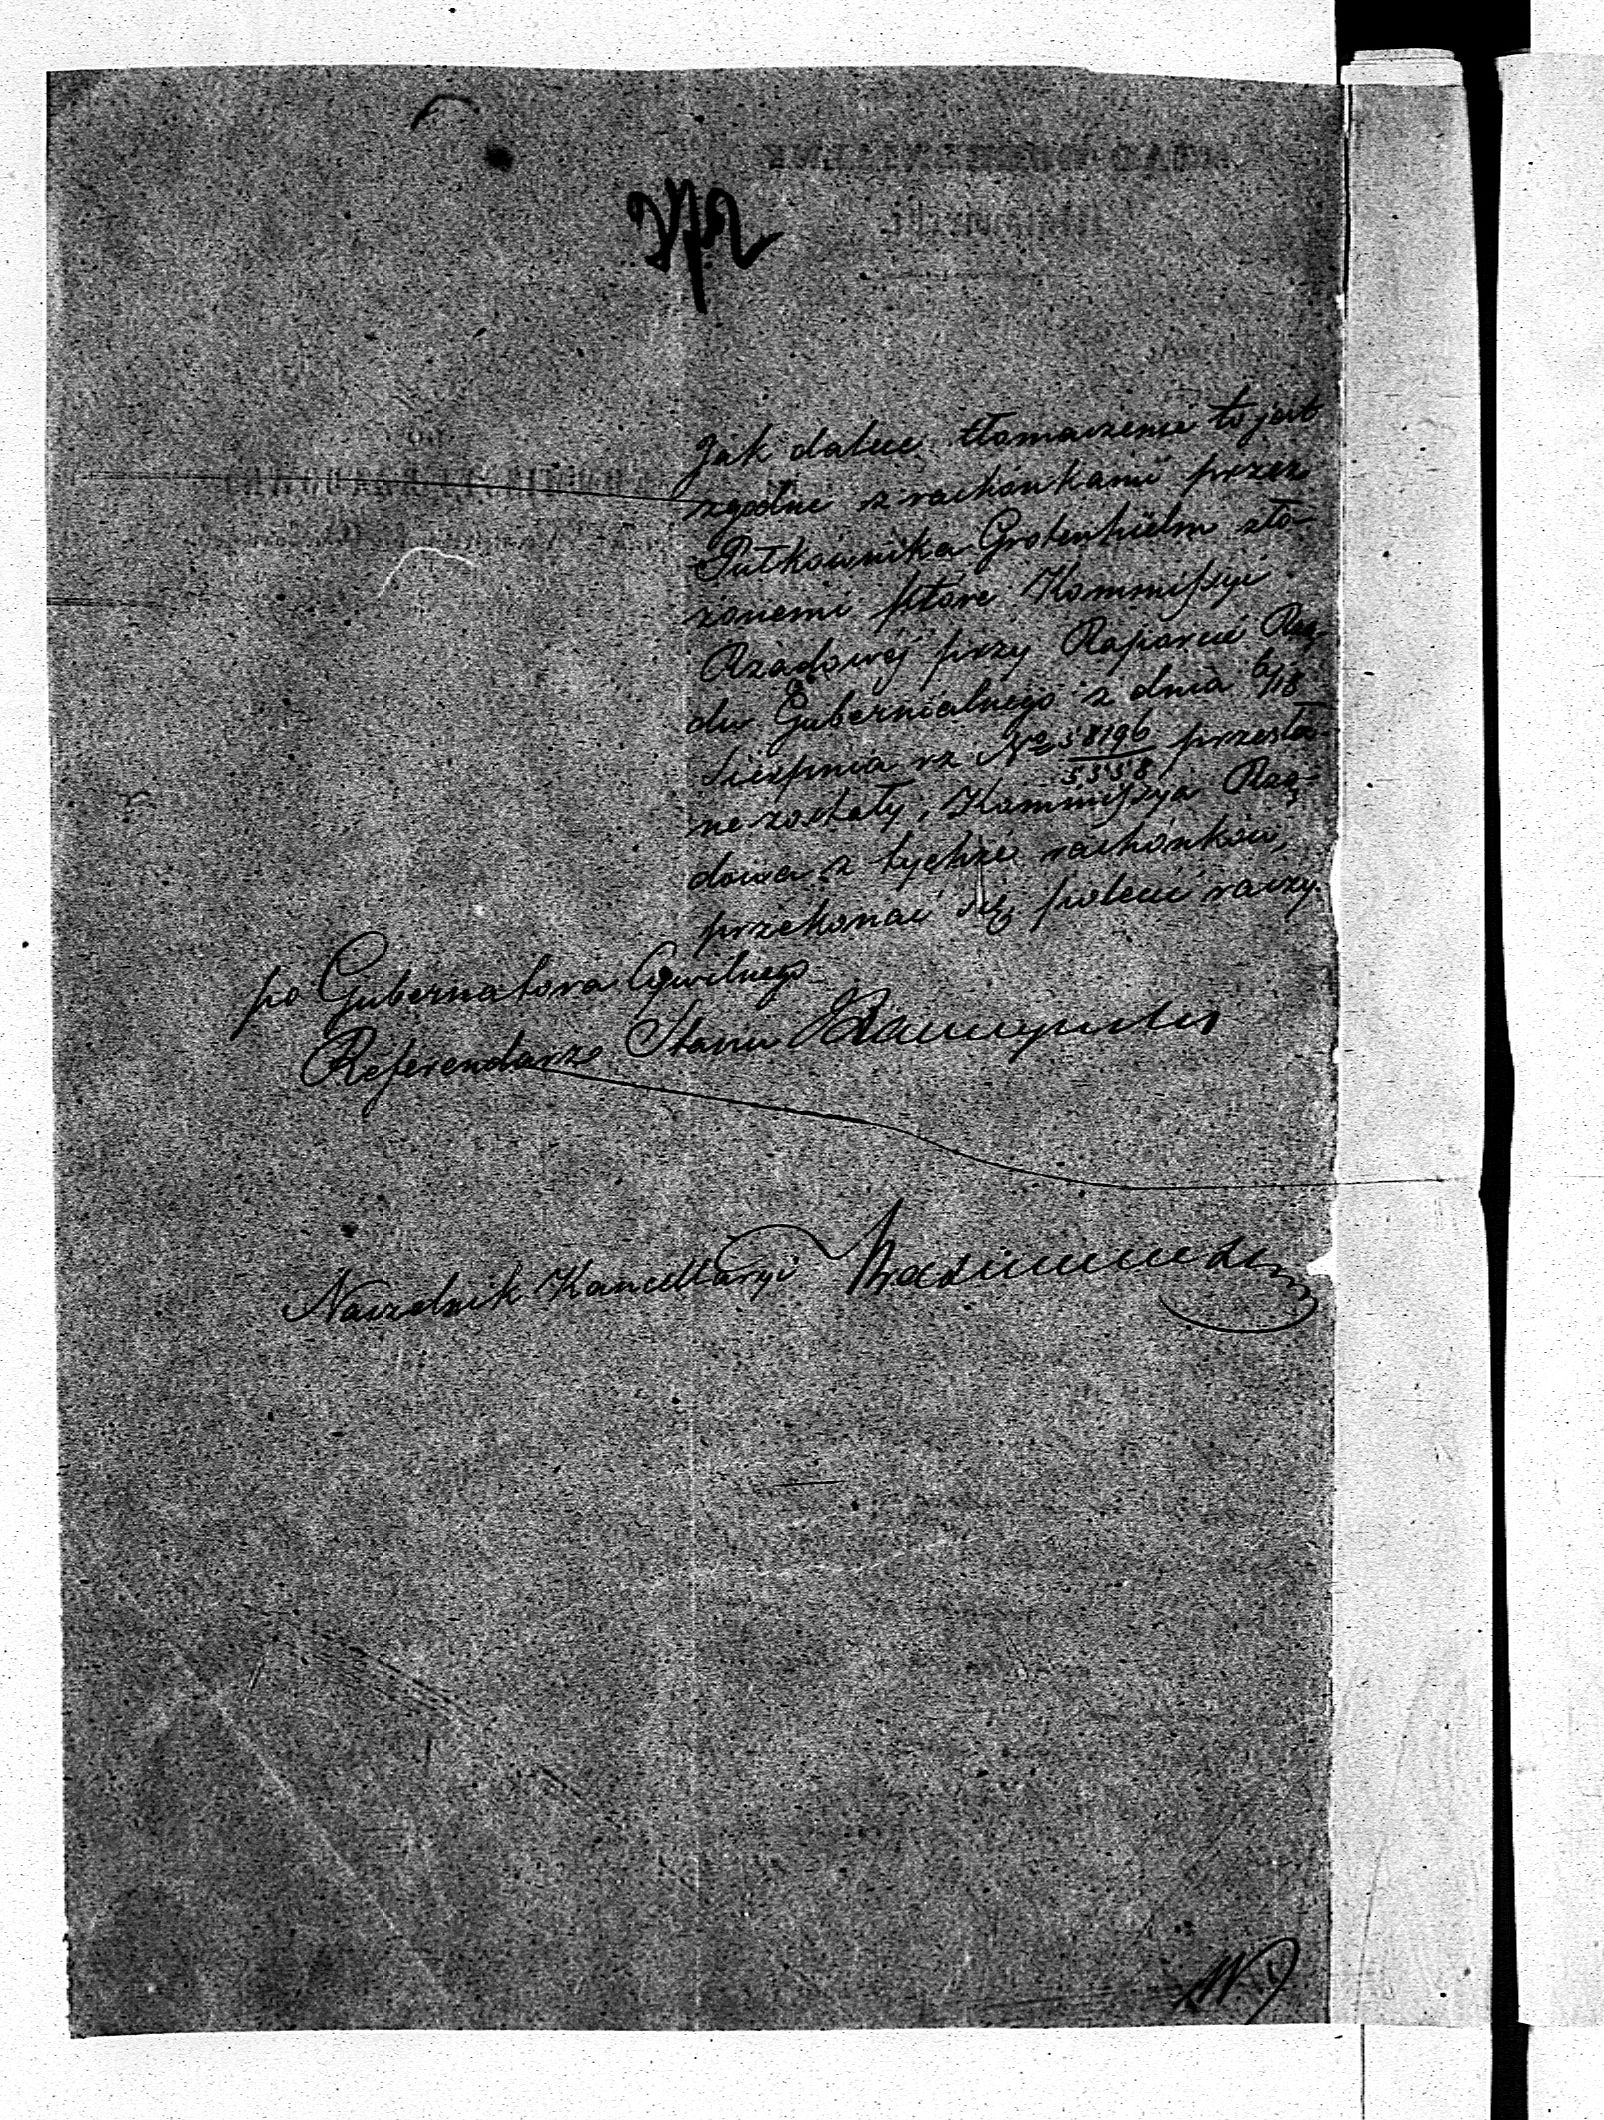 Jak dalece tłomaczenie to jest
zgodne z rachónkami przez
Pułkownika Grotenhielm zło-
żonemi które Kommissyi
Rządowéj przy Raporcie Rzą-
du Gubernialnego z dnia 6/18
Sierpnia rz No 58196/5358 przesła-
ne zostały, Kommissya Rzą-
dowa z tychże rachónków,
przekonać się polecić raczy.
po Gubernatora Cywilnego
Referendarz Stanu
Naczelnik Kancellaryi